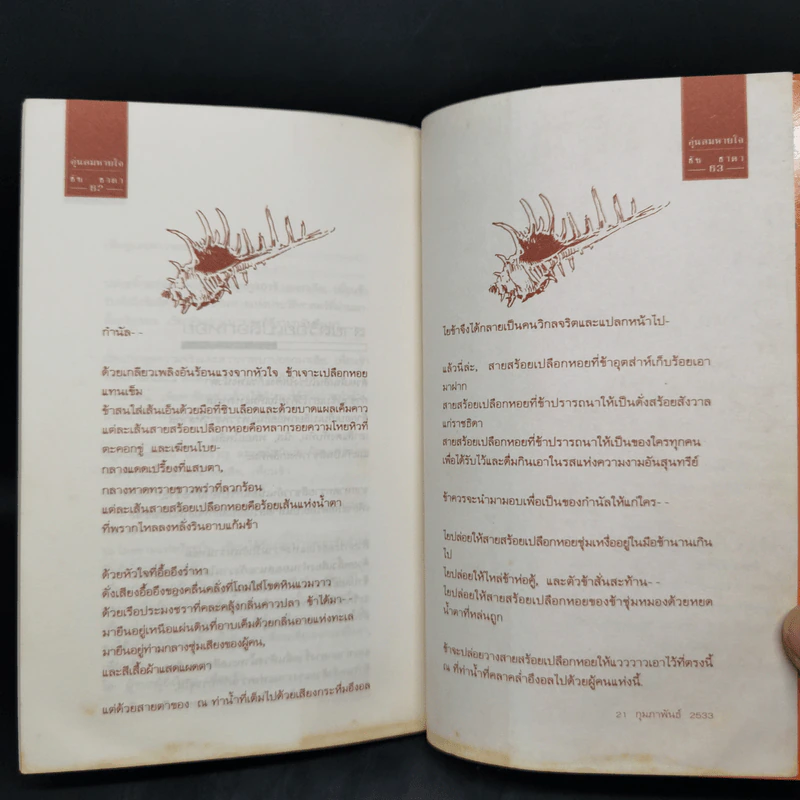 อุ่นลมหายใจ
ธัช ธาดา
52
กำนัล--
ด้วยเกลียวเพลิงอันร้อนแรงจากหัวใจ ข้าเจาะเปลือกหอย
แทนเข็ม
ข้าสนไส่เส้นเอ็นด้วยมือที่ซิบเลือดและด้วยบาดแผลเค็มคาว
แต่ละเส้นสายสร้อยเปลือกหอยคือหลากรอยความโหยหิวที่
ตะคอกขู่ และเฆี่ยนโบย-
กลางแดดเปรี้ยงที่แสบตา,
กลางหาดทรายขาวพร่าที่ลวกร้อน
แต่ละเส้นสายสร้อยเปลือกหอยคือร้อยเส้นแห่งน้ำตา
ที่พรากไหลลงหลั่งรินอาบแก้มข้า
ด้วยหัวใจที่อื้ออึงร่ำหา
ดั่งเสียงอื้ออึงของคลื่นคลั่งที่โถมใส่โขดหินแวมวาว
ด้วยเรือประมงชราที่คละคลุ้งกลิ่นคาวปลา ข้าได้มา--
มายืนอยู่เหนือแผ่นดินที่อาบเค็มด้วยกลิ่นอายแห่งทะเล
มายืนอยู่ท่ามกลางซุ่มเสียงของผู้คน,
และสีเสื้อผ้าแสดแผดตา
แต่ด้วยสายตาของ ณ ท่าน้ำที่เต็มไปด้วยเสียงกระหึ่มอึงอล
อุ่นลมหายใจ
ธัช ธาดา
53
ไยข้าจึงได้กลายเป็นคนวิกลจริตและแปลกหน้าไป-
แล้วนี่ล่ะ, สายสร้อยเปลือกหอยที่ข้าอุตส่าห์เก็บร้อยเอา
มาฝาก
สายสร้อยเปลือกหอยที่ข้าปรารถนาให้เป็นดั่งสร้อยสังวาล
แก่ราชธิดา
สายสร้อยเปลือกหอยที่ข้าปรารถนาให้เป็นของใครทุกคน
เพื่อได้รับไว้และดื่มกินเอาในรสแห่งความงามอันสุนทรีย์
ข้าควรจะนำมามอบเพื่อเป็นของกำนัลให้แก่ใคร--
ไยปล่อยให้สายสร้อยเปลือกหอยชุ่มเหงื่ออยู่ในมือข้านานเกิน
ไป
ไยปล่อยให้ไหล่ข้าห่อคู้, และตัวข้าสั่นสะท้าน--
ไยปล่อยให้สายสร้อยเปลือกหอยของข้าชุ่มหมองด้วยหยด
น้ำตาที่หล่นถูก
ข้าจะปล่อยวางสายสร้อยเปลือกหอยให้แวววาวเอาไว้ที่ตรงนี้
ณ ที่ท่าน้ำที่คลาคล่ำอึงอลไปด้วยผู้คนแห่งนี้.
21 กุมภาพันธ์ 2533